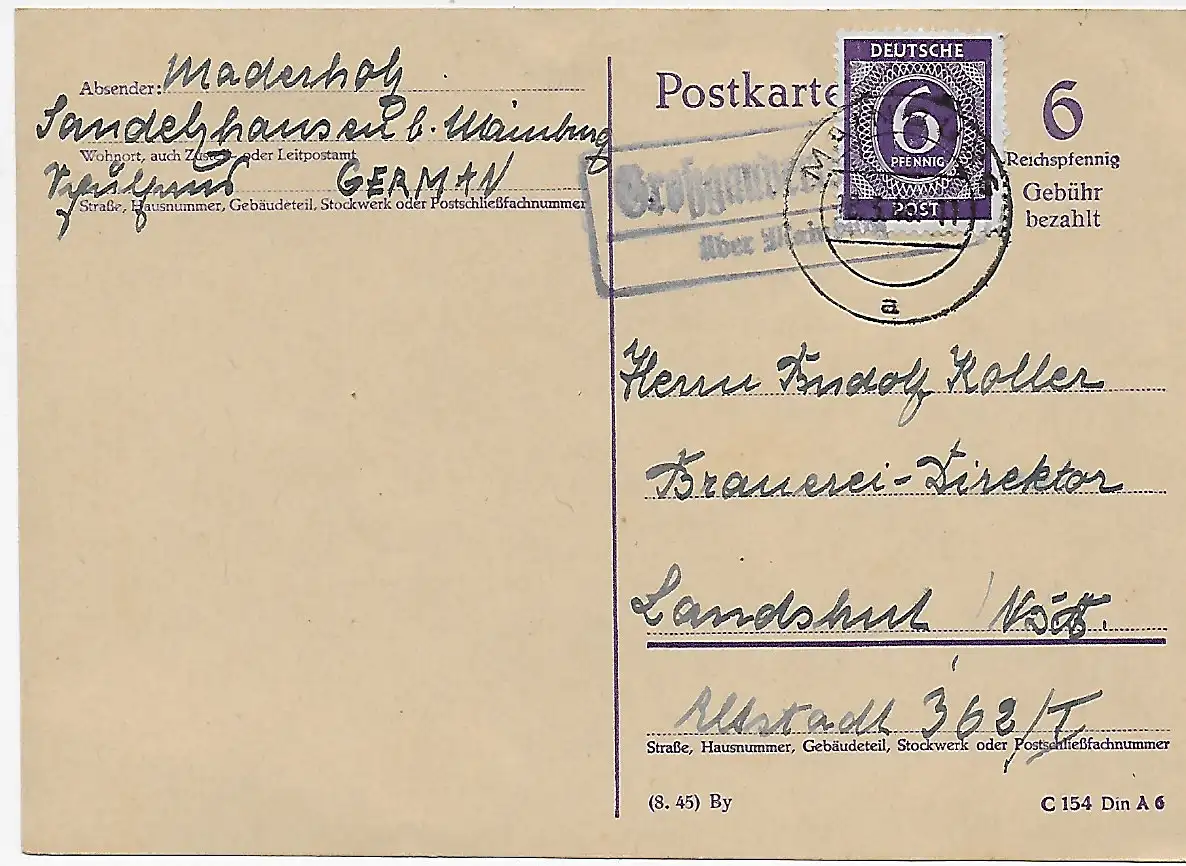 Absender: Maderholz
Sandelzhausen b. Mainburg
Wohnort, auch Zustell- oder Leitpostamt
GERMAN
Straße, Hausnummer, Gebäudeteil, Stockwerk oder Postschließfachnummer
Postkarte
DEUTSCHE
6
PFENNIG
POST
6
Reichspfennig
Gebühr
bezahlt
über
a
Herrn Rudolf Koller
Brauerei-Direktor
Landshut
Altstadt 362/I
Straße, Hausnummer, Gebäudeteil, Stockwerk oder Postschließfachnummer
(8. 45) By
C 154 Din A 6